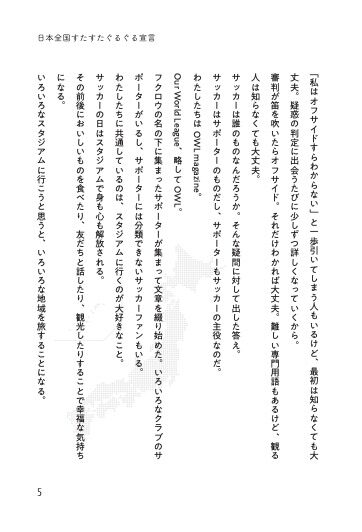 日本全国すたすたぐるぐる宣言
「私はオフサイドすらわからない」と一歩引いてしまう人もいるけど、最初は知らなくても大
丈夫。疑惑の判定に出会うたびに少しずつ詳しくなっていくから。
審判が笛を吹いたらオフサイド。それだけわかれば大丈夫。難しい専門用語もあるけど、観る
人は知らなくても大丈夫。
サッカーは誰のものなんだろうか。そんな疑問に対して出した答え。
サッカーはサポーターのものだし、サポーターもサッカーの主役なのだ。
わたしたちはOWL magazine。
Our World League、略してOWL。
フクロウの名の下に集まったサポーターが集まって文章を綴り始めた。いろいろなクラブのサ
ポーターがいるし、サポーターには分類できないサッカーファンもいる。
わたしたちに共通しているのは、スタジアムに行くのが大好きなこと。
サッカーの日はスタジアムで身も心も解放される。
その前後においしいものを食べたり、友だちと話したり、観光したりすることで幸福な気持ち
になる。
いろいろなスタジアムに行こうと思うと、いろいろな地域を旅することになる。
5